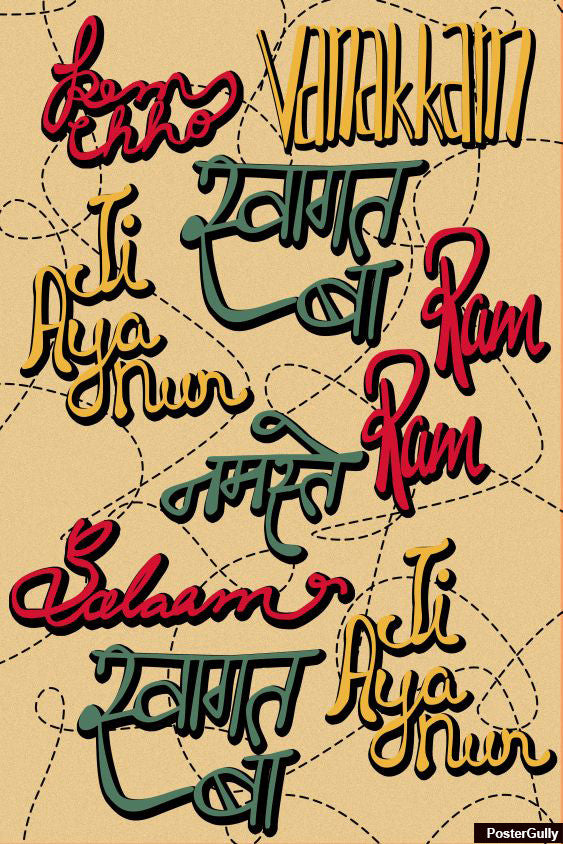 Kem
chho
Vanakkam
स्वागत
बा
Ji
Aya
nun
Ram
Ram
नमस्ते
Salaam
Ji
Aya
nun
स्वागत
बा
PosterGully